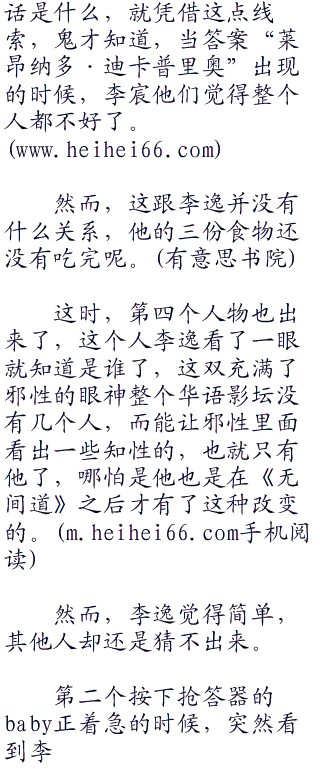 话是什么，就凭借这点线
索，鬼才知道，当答案“莱
昂纳多·迪卡普里奥”出现
的时候，李宸他们觉得整个
人都不好了。
(www.heihei66.com)
然而，这跟李逸并没有
什么关系，他的三份食物还
没有吃完呢。(有意思书院)
这时，第四个人物也出
来了，这个人李逸看了一眼
就知道是谁了，这双充满了
邪性的眼神整个华语影坛没
有几个人，而能让邪性里面
看出一些知性的，也就只有
他了，哪怕是他也是在《无
间道》之后才有了这种改变
的。(m.heihei66.com手机阅
读)
然而，李逸觉得简单，
其他人却还是猜不出来。
第二个按下抢答器的
baby正着急的时候，突然看
到李